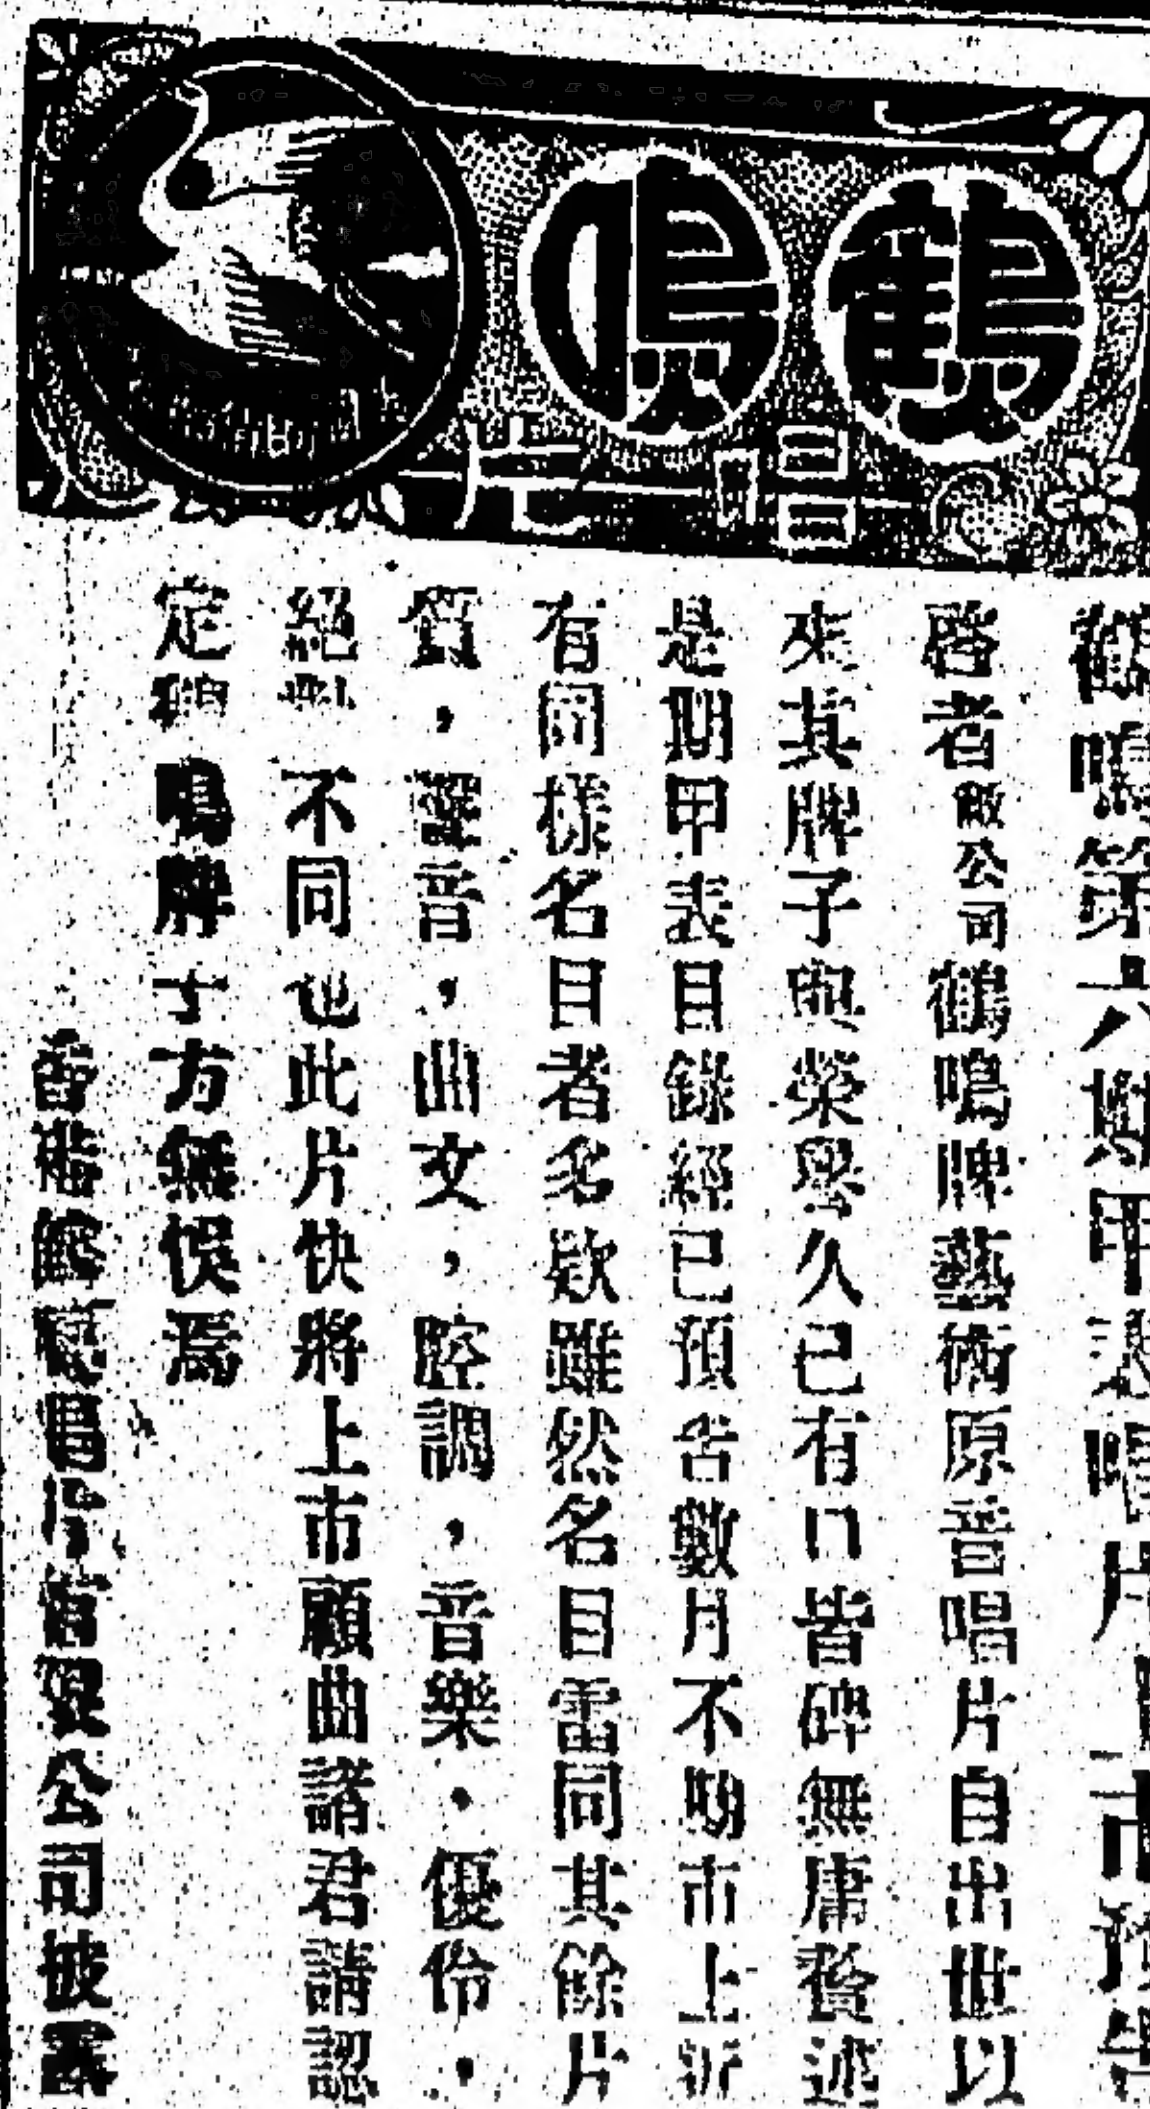 鶴鳴
唱片
鶴鳴第六期甲表唱片上市預告
啓者敝公司鶴鳴牌藝術原音唱片自出世以
來其牌子與榮譽久已有口皆碑無庸贅述
是期甲表目錄經已預告數月不料市上近
有同樣名目者多欵雖然名目雷同其餘片
質，聲音，曲文，腔調，音樂・優伶・
絕對不同也此片快將上市顧曲諸君請認
定鶴鳴牌子方無悞焉
香港鶴鳴唱片有限公司披露